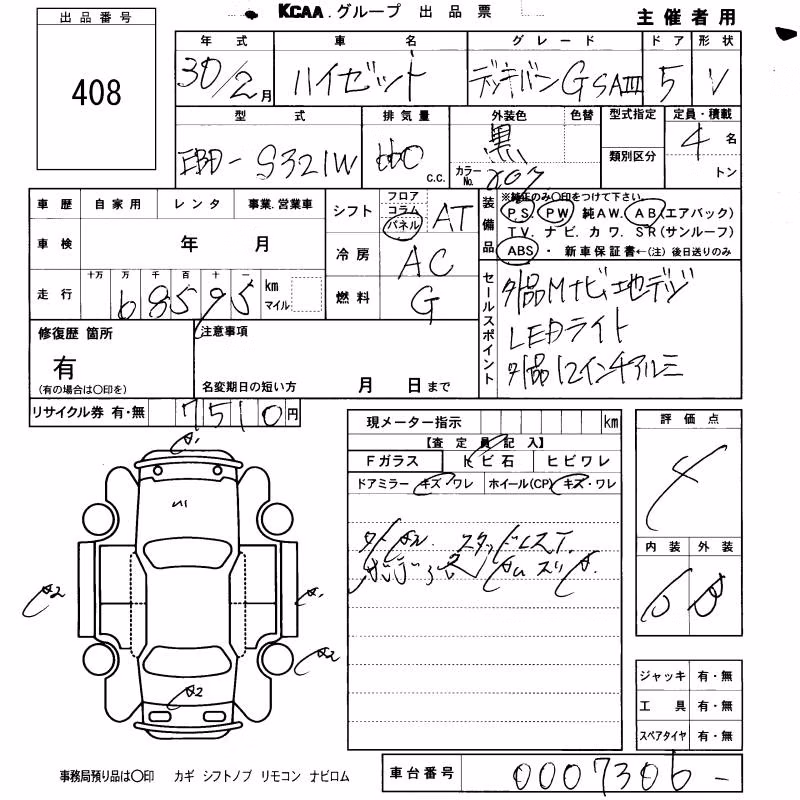 KCAA.グループ 出品票
主催者用
出品番号
408
年式 車名 グレード ドア 形状
30/2月 ハイゼット デッキバンGSAIII 5 V
型式 排気量 外装色 色替 型式指定 定員・積載
EBD-S321W 660 c.c. 黒 類別区分 4名
カラーNo. トン
車歴 自家用 レンタ 事業.営業車
シフト フロア コラム パネル AT
装備品 ※純正のみ○印をつけて下さい。
PS. PW 純AW. AB(エアバック)
TV. ナビ. カワ. SR(サンルーフ)
ABS・新車保証書←(注)後日送りのみ
車検 年 月
冷房 AC
走行 十万 万 千 百 十 一
68595 km マイル
燃料 G
セールスポイント
外品Mナビ・地デジ
LEDライト
外品12インチアルミ
修復歴 箇所
有
(有の場合は○印を)
注意事項
名変期日の短い方 月 日まで
リサイクル券 有・無 7510円
現メーター指示 km
【査定員記入】
Fガラス トビ石 ヒビワレ
ドアミラー キズ・ワレ ホイール(CP) キズ・ワレ
スタッドレスT.
評価点
4
内装 外装
A1
A2
A1
A2
A2
ジャッキ 有・無
工具 有・無
スペアタイヤ 有・無
事務局預り品は○印 カギ シフトノブ リモコン ナビロム
車台番号 0007306-